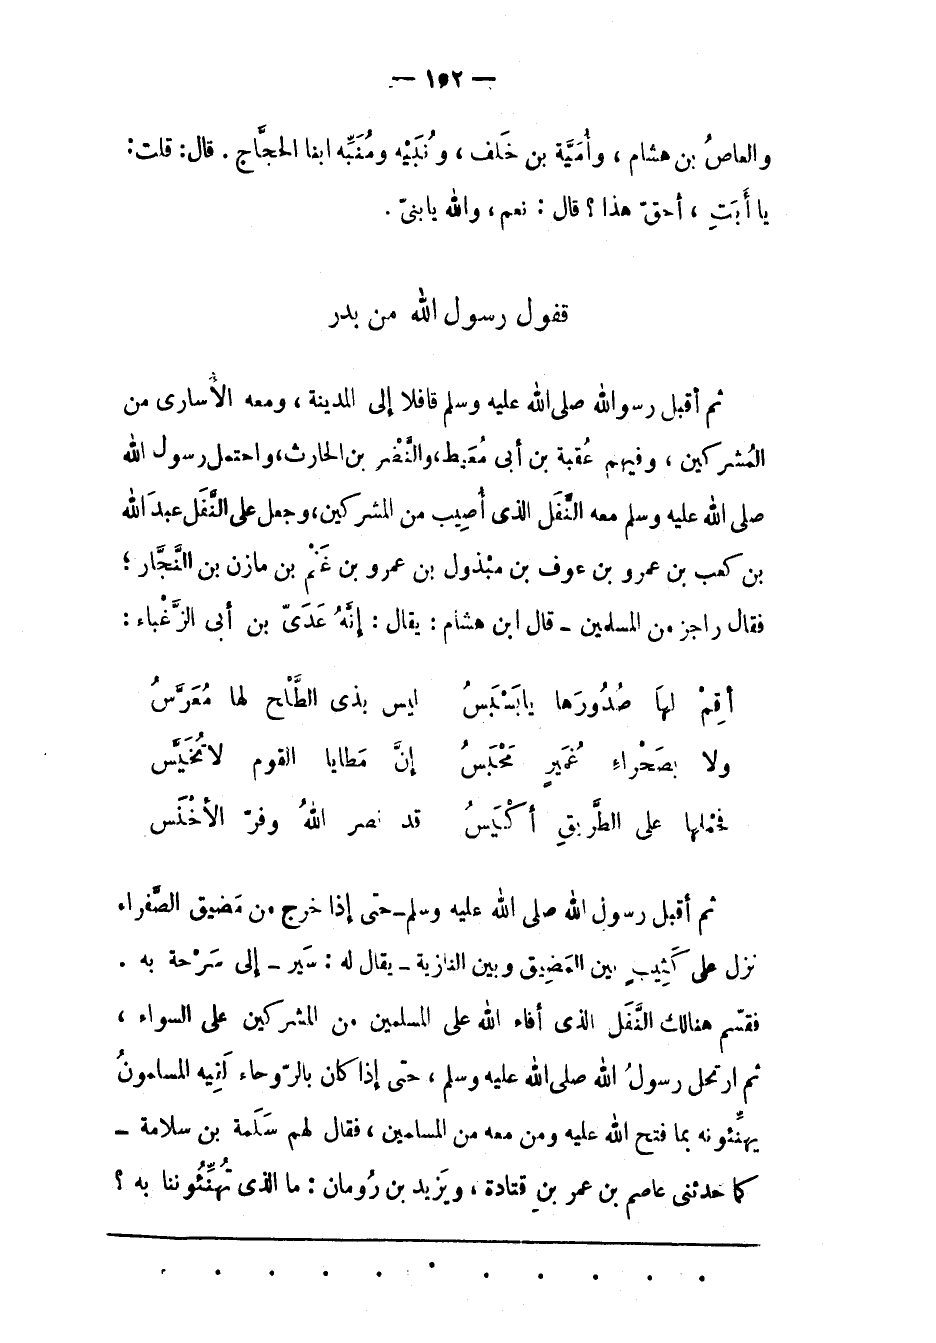 — ١٥٢ —
والعاصُ بن هشام ، وأُمَيَّة بن خَلَف ، و نُبَيْه ومُنَبِّه ابنا الحجَّاج . قال: قلت:
يا أَبَتِ ، أحقّ هذا ؟ قال : نعم ، والله يابنىّ .
قفول رسول الله من بدر
ثم أقبل رسوالله صلى الله عليه وسلم قافلا إلى المدينة ، ومعه الأسارى من
المُشركين ، وفيهم عُقبة بن أبى مُعَيط ، والنَّضْر بن الحارث ، واحتمل رسول الله
صلى الله عليه وسلم معه النَّفَل الذى أُصِيب من المشركين ، وجعل على النَّفَل عبدَ الله
بن كعب بن عمرو بن عوف بن مبْذول بن عمرو بن غَنْم بن مازن بن النَّجَّار ؛
فقال راجز من المسلمين ــ قال ابن هشام : يقال : إنَّهُ عَدَىّ بن أبى الزَّغْباء :
أقِمْ لهاَ صُدُورَها يابَسْبَسُ ليس بذى الطَّلْح لها مُعَرَّسُ
ولا بصَحْراءِ غُمَيرٍ مَحْبَسُ إنَّ مَطايا القوم لاتُخَيَّس
فحَمْلها على الطَّريقِ أكْيَسُ قد نصر اللهُ وفرّ الأخْنَس
ثم أقبل رسول الله صلى الله عليه وسلم ــ حتى إذا خرج من مَضيق الصَّفراء
نزل على كَثِيبٍ بين المَضِيق وبين النازية ــ يقال له : سَير ــ إلى سَرْحة به .
فقسّم هنالك النَّفَل الذى أفاء الله على المسلمين من المشركين على السواء ،
ثم ارتحل رسولُ الله صلى الله عليه وسلم ، حتى إذا كان بالرّوحاء لَقِيه المسلمونُ
يهنِّئونه بما فتح الله عليه ومن معه من المسلمين ، فقال لهم سَلَمة بن سلامة ــ
كما حدثنى عاصم بن عمر بنِ قتادة ، ويَزيد بن رُومان : ما الذى تُهنِّئُوننا به ؟